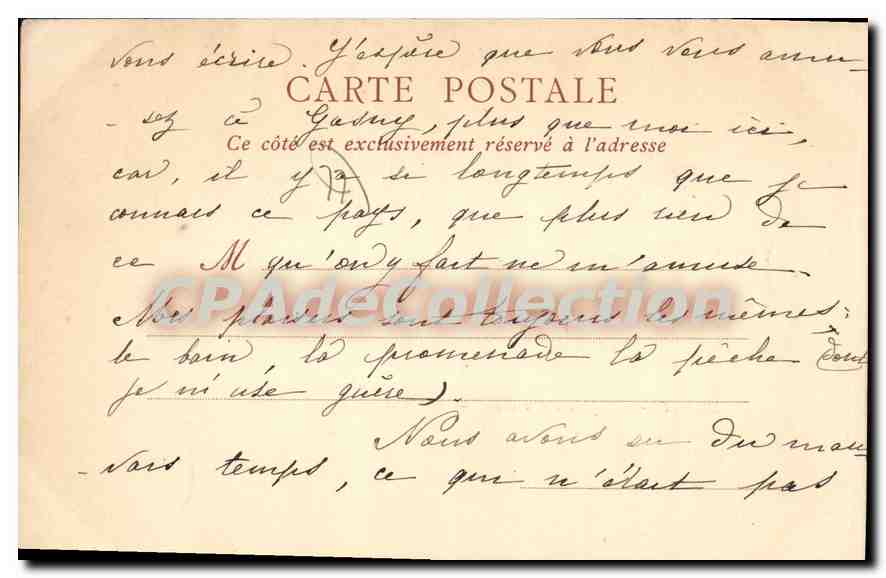 vous écrire. J'espère que vous vous amu-
CARTE POSTALE
-sez à Gasny, plus que moi ici,
Ce côté est exclusivement réservé à l'adresse
car, il y a si longtemps que je
connais ce pays, que plus rien de
ce M qu'on y fait ne m'amuse.
CPAdeCollection
Nos plaisirs sont toujours les mêmes:
le bain, la promenade la pêche (dont
je n'use guère).
Nous avons eu du mau-
-vais temps, ce qui n'était pas